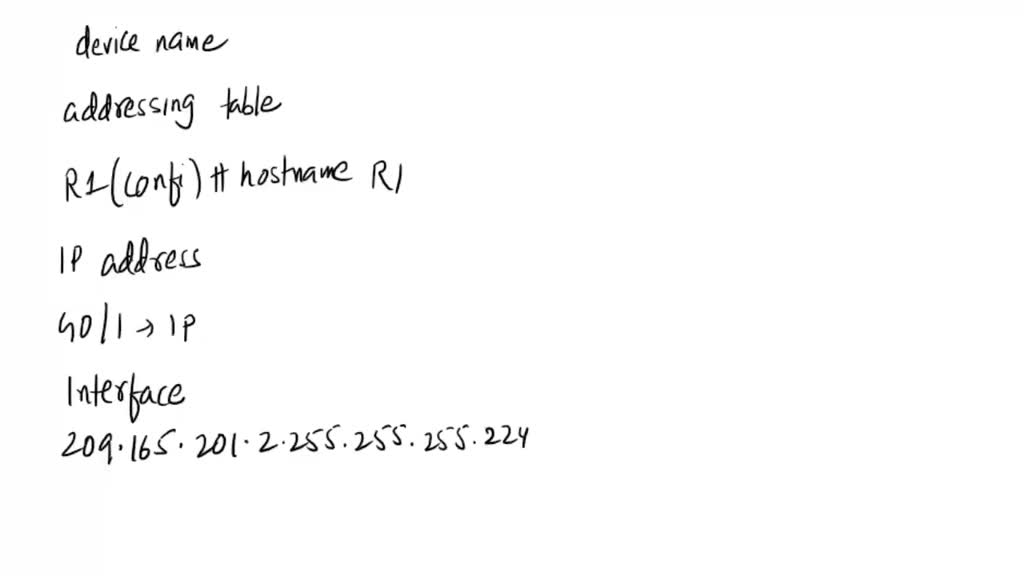 device name
addressing table
R1(confi)# hostname R1
IP address
G0/1 → IP
Interface
209.165.201.2.255.255.255.224